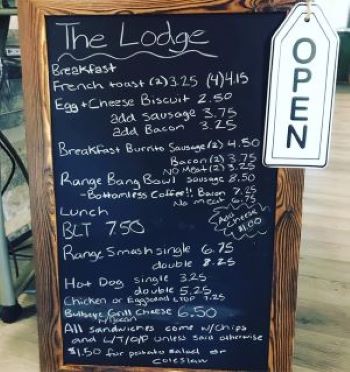 The Lodge
OPEN
Breakfast
French toast (2) 3.25 (4) 4.15
Egg + Cheese Biscuit 2.50
add sausage 3.75
add Bacon 3.25
Breakfast Burrito Sausage (2) 4.50
Bacon (2) 3.75
NO Meat (2) 3.25
Range Bang Bowl sausage 8.50
- Bottomless Coffee!! Bacon 7.25
No meat 6.75
Add cheese $1.00
Lunch
BLT 7.50
Range Smash single 6.75
double 8.25
Hot Dog single 3.25
double 5.25
Chicken or Egg salad LTOP 7.25
Bullseye Grill Cheese 6.50
w/Bacon
All sandwiches come w/chips
and L/T/O/P unless said otherwise
$1.50 for potato salad or
coleslaw